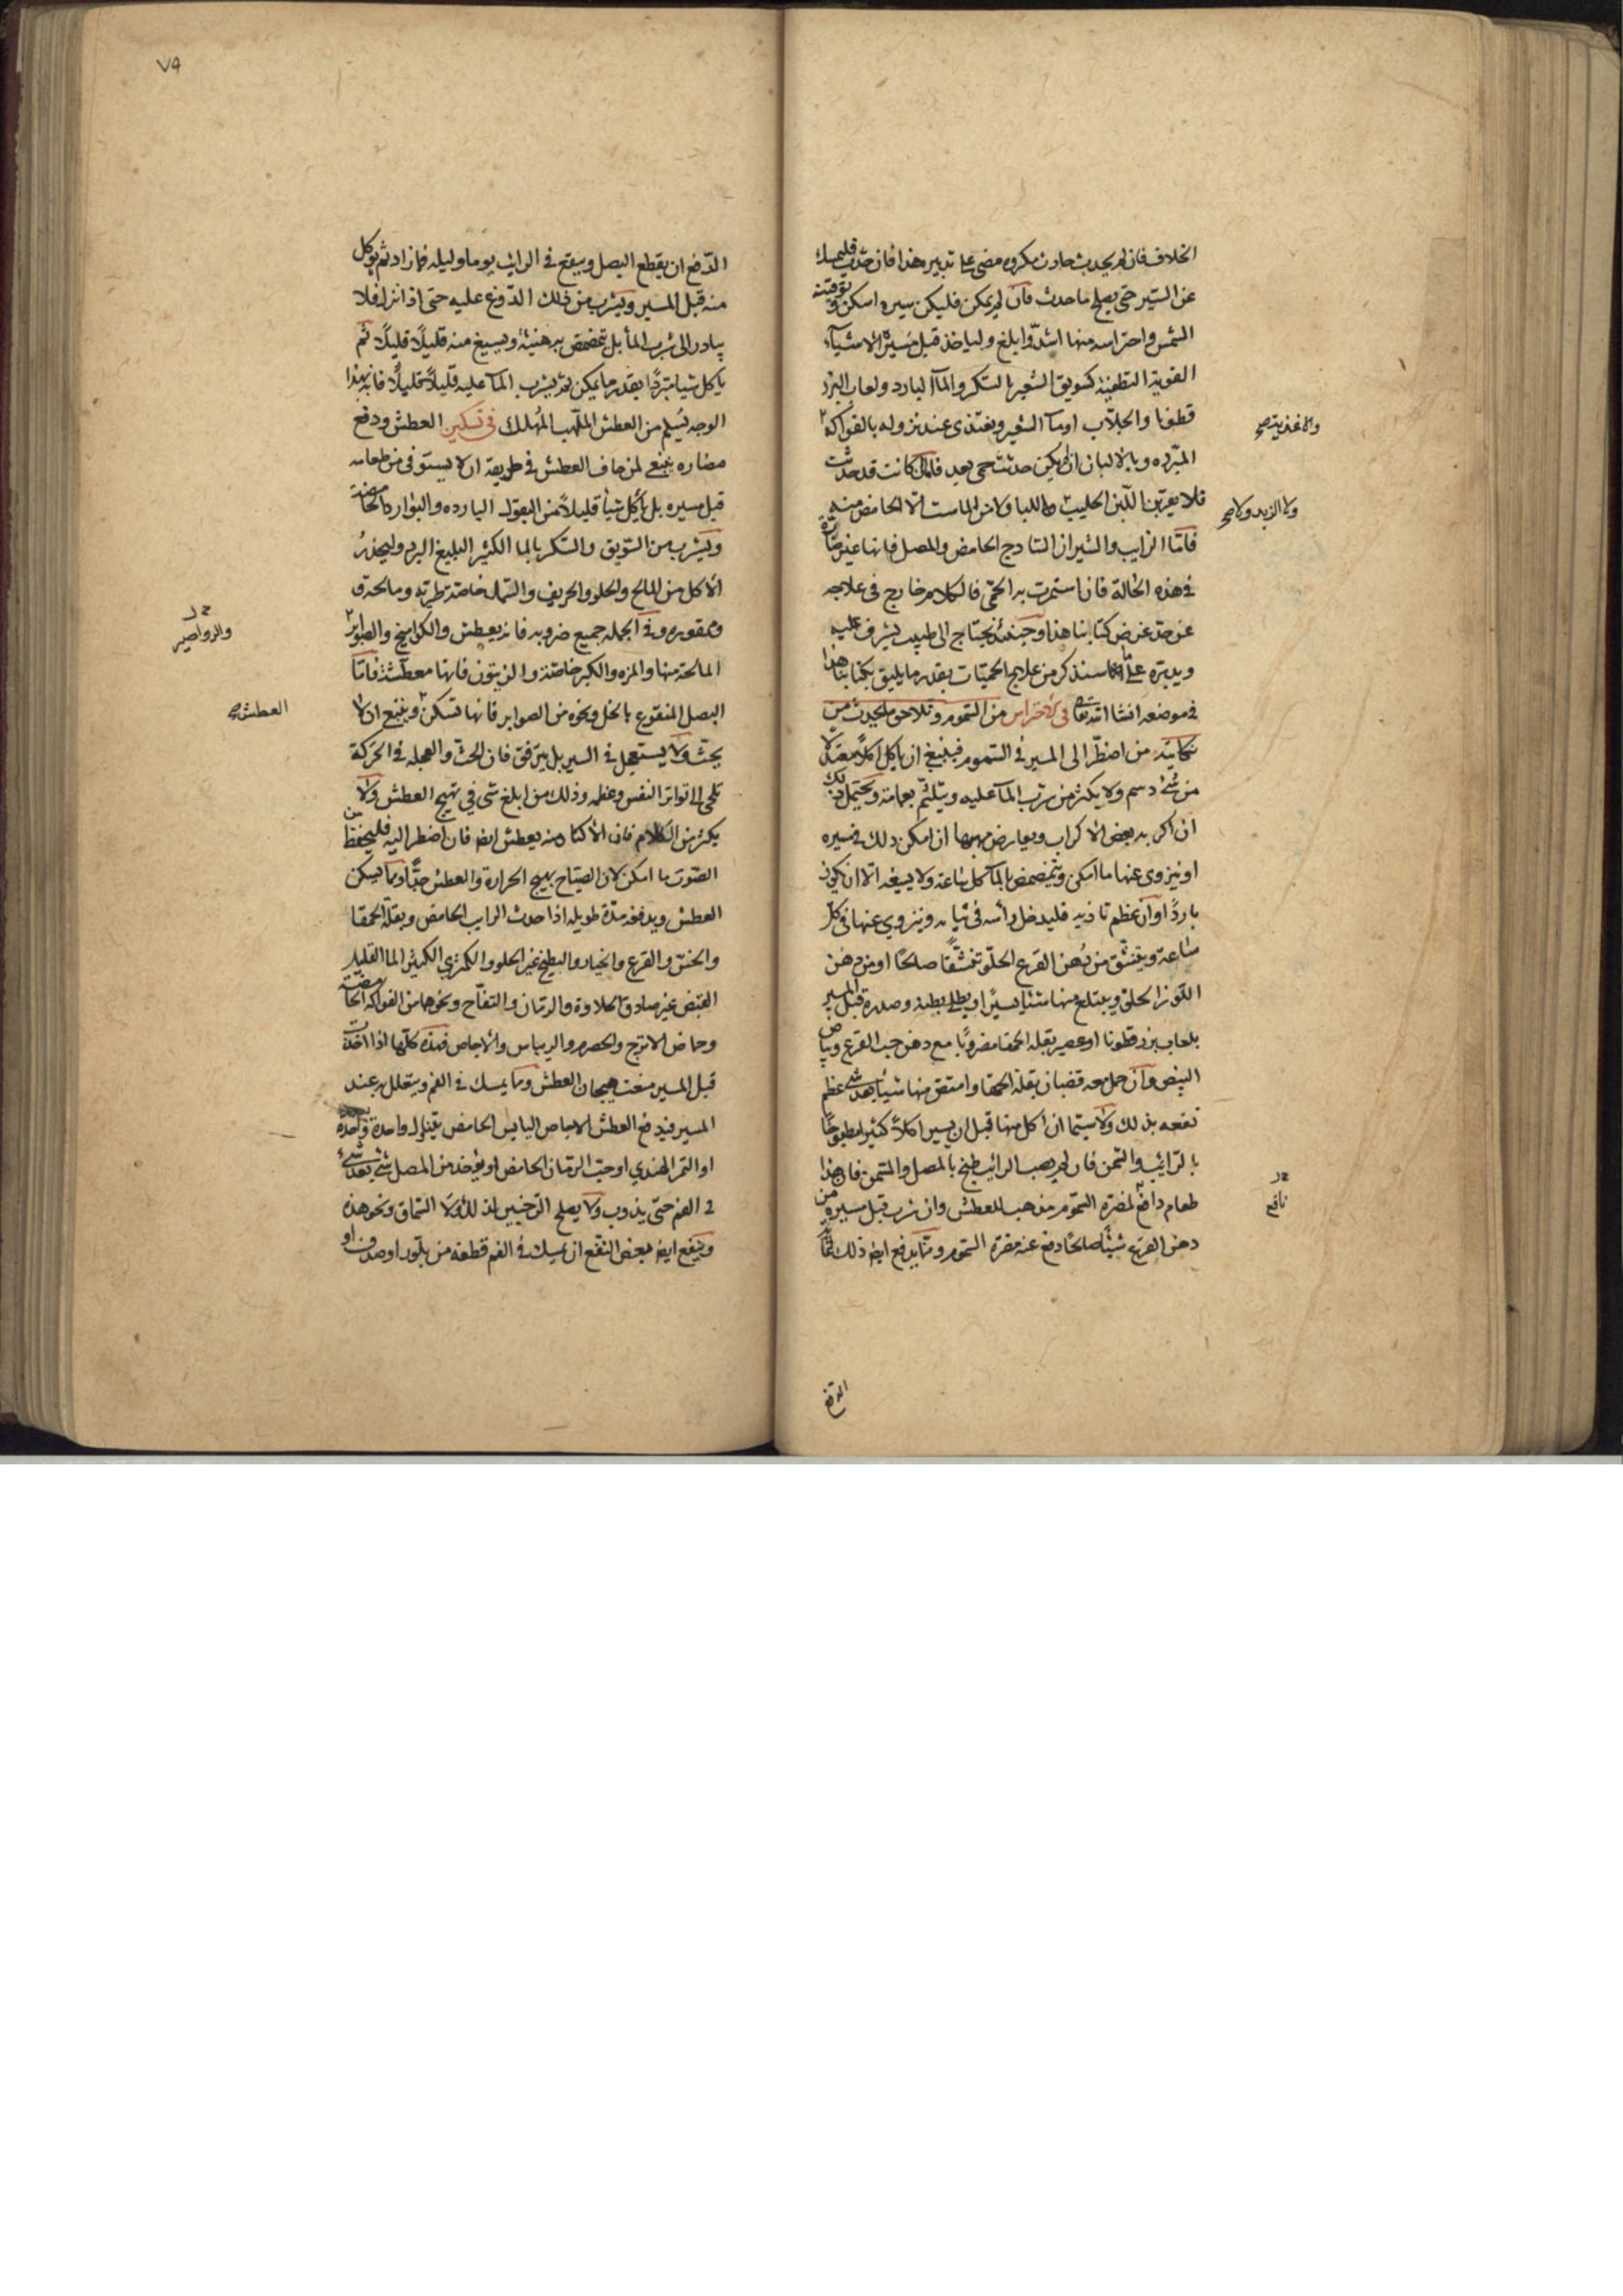 الخلاف فان لم يحدث حادث مكروه مضى على تدبيره هذا فان حدث فليمسك
عن السير حتى يصلح ما حدث فان لم يمكن فليكن سيره اسكن وتوقيته
الشمس واحتراسه منها اشدّ وابلغ ولياخذ قبل مسيره الاشياء
القوية التطفية كسويق الشعير بالسكر والماء البارد ولعاب البزر
قطونا والجلاب او ماء الشعير ويغتذى عند نزوله بالفواكه
والاغذية صح
المبرّده وبالالبان ان لم يكن حدثت حمى بعد فان كانت قد حدثت
فلا يقربن اللبن الحليب ولا اللبا ولا من الماست الا الحامض منه
ولا الزبد ولا صح
فامّا الرايب والشيراز الساذج الحامض والمصل فانها غير ضارة
فى هذه الحالة فان استمرت به الحمّى فالكلام خارج فى علاجه
عن حدّ غرض كتابنا هذا وحينئذ يحتاج الى طبيب يشرف عليه
ويدبره على انا سنذكر من علاج الحميّات بقدر ما يليق بكتابنا هذا
فى موضعه انشا الله تعالى فى الاحتراس من السموم وتلاحق ما يحدث من
نكايته من اضطّر الى المسير فى السموم فينبغى ان ياكل اكلا معتدلا
من شئ دسم ولا يكثر من شرب الماء عليه ويتلثم بعمامة ويحتمل ذلك
ان اكربه بعض الاكراب ويعارض مهبها ان امكن ذلك فى مسيره
او ينزوى عنها ما امكن ويتمضمض بالماء كل ساعة ولا يسيغه الا ان يكون
باردًا وان عظم تاذيه فليدخل رأسه فى ثيابه وينزوي عنها فى كل
ساعة ويتنشق من دهن القرع الحلو تنشقًا صالحًا او من دهن
اللوز الحلو ويبتلع منها شئيا يسيرًا او يطلى بطنه وصدره قبل المسير
بلعاب بزر قطونا او عصير بقلة الحمقا مضروبًا مع دهن حب القرع وبياض
البيض وان حمل معه قضبان بقلة الحمقا وامتص منها شيئا بعد شئ عظم
نفعه بذلك ولا سيّما ان اكل منها قبل ان يسير اكلاً كثيرا مطبوخًا
بالرايب والسمن فان لم يصب الرايب طبخ بالمصل والسمن فان هذا
طعام دافع لمضرة السموم مذهب للعطش وان شرب قبل مسيره من
نافع
دهن القرع شيئًا صالحًا دفع عنه مضرة السموم وممّا يدفع ايضا ذلك
الدفع
٧٩
الدفع ان يقطع البصل وينقع فى الرايب يوما وليله فما زاد ثم يوكل
منه قبل المسير ويشرب من ذلك الدوغ عليه حتى اذا نزل فلا
يبادر الى شرب الماء بل يتمضمض به هنيئة ويسيغ منه قليلًا قليلًا ثم
ياكل شيا مبردًا بقدر ما يمكن ثم يشرب الماء عليه قليلًا قليلًا فانه بهذا
الوجه يسلم من العطش الملهب المهلك فى تسكين العطش ودفع
مضاره ينبغى لمن خاف العطش فى طريقه ان لا يستوفى من طعامه
قبل مسيره بل يأكل شيأ قليلاً من البقول البارده والبوارد الحامضة
ويشرب من السويق والسكر بالما الكثير البليغ البرد وليحذر
الاكل من المالح والحلو والحريف والسمك خاصة طريّه ومالحه و
ممقوره وفى الجمله جميع ضروبه فانه يعطش والكواميخ والصوابر
والرواصير
المالحة منها والمزه والكبر خاصّة والزيتون فانها معطّشة فامّا
البصل المنقوع بالخل ونحوه من الصوابر فانها تسكن وينبغى ان لا
العطش صح
يحثّ ولا يستعجل فى السير بل يترفق فان الحثّ والعجله فى الحركة
تلجى الى تواتر النفس وعظمه وذلك من ابلغ شى في تهيج العطش ولا
يكثر من الكلام فان الاكثار منه يعطش ايضا فان اضطر اليه فليخفظ من
الصوت ما امكن لان الصيّاح يهيج الحرارة والعطش جدًّا ومما يسكن
العطش ويدفعه مدّة طويله اذا حدث الرايب الحامض وبقلة الحمقا
والخس والقرع والخيار والبطيخ غير الحلو والكمثري الكثير الما القليل
القبض غير صادق الحلاوة والرمان والتفّاح ونحوها من الفواكه الحامضة
وحماض الاترج والحصرم والريباس والاجاص فهذه كلّها اذا اخذت
قبل المسير منعت هيجان العطش ومما يمسك فى الفم ويتعلل به عند
المسير فيدفع العطش الاجاص اليابس الحامض يتناول واحدة بعد واحدة
او التمر الهندي او حبّ الرمان الحامض او يؤخذ من المصل شئ بعد شئ
فى الفم حتى يذوب ولا يصلح الترنجبين لذلك ولا السماق ونحو هذه
وينفع ايضا بعض النفع ان يمسك فى الفم قطعة من بلّور او صدف او